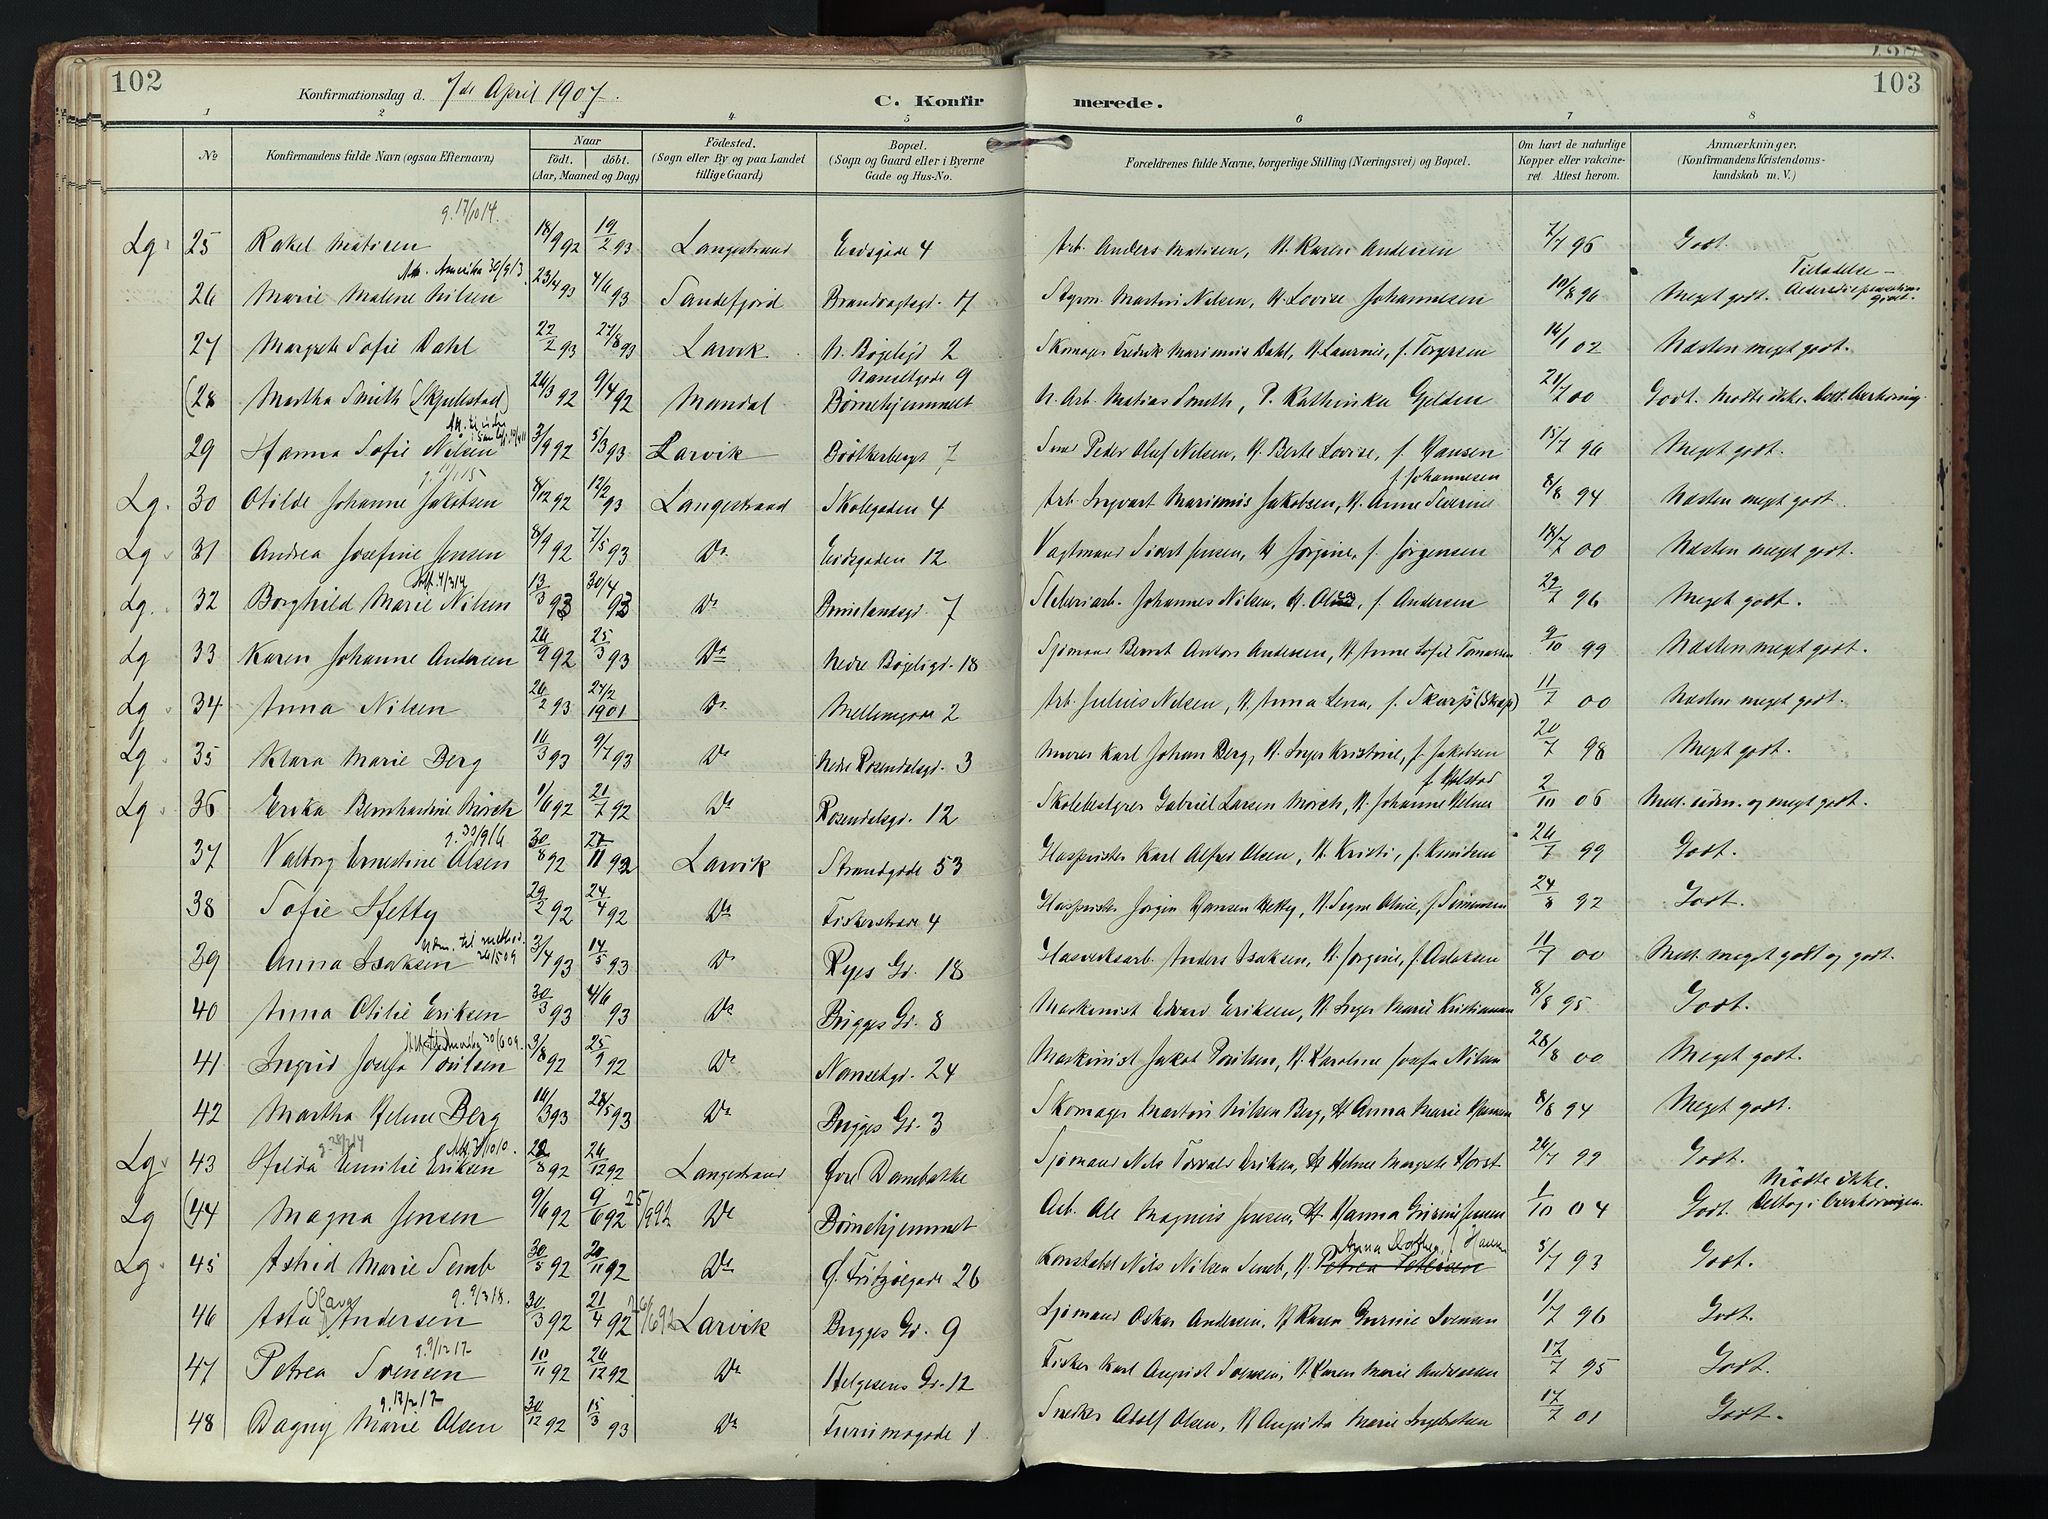 102
Konfirmationsdag d. 7de April 1907.
C. Konfir
merede.
103
1 2 3 4 5 6 7 8
No
Konfirmandens fulde Navn (ogsaa Efternavn)
Naar
født. døbt.
(Aar, Maaned og Dag)
Fødested.
(Sogn eller By og paa Landet
tillige Gaard)
Bopæl.
(Sogn og Gaard eller i Byerne
Gade og Hus-No.
Forældrenes fulde Navne, borgerlige Stilling (Næringsvei) og Bopæl.
Om havt de naturlige
Kopper eller vakcine-
ret Attest herom.
Anmærkninger,
(Konfirmandens Kristendoms-
kundskab m. V.)
g. 17/10 14.
Lg. 25 Rakel Matisen 18/9 92 19/2 93 Langestrand Eidsgade 4 Arb. Anders Matisen, H. Karen Andersen 7/7 96 Godt.
Att. Amerika 30/9 13.
26 Marie Malene Nilsen 23/4 93 4/6 93 Sandefjord Brandvagtsgd. 17 Styrm. Martin Nilsen, H. Lovise Johannesen 10/8 96 Meget godt. Tilladelse – Aldersdispensation givet.
27 Margrete Sofie Dahl 22/2 93 27/8 93 Larvik N. Bøgeligd 2 Skomager Fredrik Marinius Dahl, H. Laurnie, f. Torgersen 14/1 02 Næsten meget godt.
Nansetgade 9
(28 Martha Smith (Skjellstad) 26/3 92 9/4 92 Mandal Børnehjemmet U. Arb. Matias Smith, P. Kathinka Gjelden 21/7 00 Godt. Mødte ikke. Delt. Overhøring.
29 Hanna Sofie Nilsen 3/9 92 5/3 93 Larvik Bøkkerbergt 7 Smed Peder Oluf Nilsen, H. Berte Lovise, f. Hansen 15/7 96 Meget godt.
g. 11/1 15 f. Johannesen
Lg. 30 Otilde Johanne Jakobsen 4/12 92 12/2 93 Langestrand Skolegaden 4 Arb. Ingvart Marinius Jakobsen, H. Anne Severine 8/8 94 Næsten meget godt.
Lg 31 Andrea Josefine Jensen 8/9 92 7/5 93 Do Eidsgaden 12 Vagtmand Sivert Jensen, H. Jørgine, f. Jørgensen 18/7 00 Næsten meget godt.
Att. 4/3 14
Lg. 32 Borghild Marie Nilsen 13/3 93 30/4 93 Do Brunelandsgd. 7 Støberiarb. Johannes Nilsen, H. f. Andersen 22/7 96 Meget godt.
Lg 33 Karen Johanne Andersen 26/9 92 25/3 93 Do Nedre Bøgeligd. 18 Sjømand Bernt Anton Andersen, H. Anne Sofie Tomassen 9/10 99 Næsten meget godt.
Lg 34 Anna Nilsen 26/2 93 24/2 1901 Do Mellemgade 2 Arb. Julius Nilsen, H. Anna Lena, f. Skarp (Skap) 11/7 00 Næsten meget godt.
Lg. 35 Klara Marie Berg 16/3 93 9/7 93 Do Nedre Rosendalsgd. 3 Murer Karl Johan Berg, H. Inger Kristine, f. Jakobsen 20/7 98 Meget godt.
f. Helstad
Lg. 36 Erika Bernhardine Mørch 11/6 92 21/7 92 Do Rosendalsgd. 12 Skolebestyrer Gabriel Larsen Mørch, H. Johanne Helene 2/10 06 Mell. udm. og meget godt.
g. 30/9 16
37 Valborg Ernestine Olsen 30/8 92 27/11 92 Larvik Strandgade 53 Glaspuster Karl Alfred Olsen, H. Kristi, f. Knudsen 26/7 99 Godt.
38 Sofie Hetty 29/2 92 24/4 92 Do Fiskerstrade 4 Glaspuster Jørgen Hansen Hetty, H. Signe Oline, f. Simonsen 24/8 92 Godt.
Udm. til method. 24/5 09
39 Anna Isaksen 3/4 93 14/5 93 Do Ryes Gd. 18 Glasverksarb. Anders Isaksen, H. Jørgine, f. Aslaksen 11/7 00 Mell. meget godt og godt.
40 Anna Otilie Eriksen 30/3 93 4/6 93 Do Brigges Gd. 8 Maskinist Edvard Eriksen, H. Inger Marie Kristiansen 8/8 95 Godt.
41 Ingrid Josefa Poulsen 3/8 92 25/9 92 Do Nansetgd. 24 Maskinist Jakob Poulsen, H. Karoline Josefa Nilsen 28/8 00 Meget godt.
42 Martha Helene Berg 16/3 93 28/5 93 Do Brigges Gd. 3 Skomager Martin Nilsen Berg, H. Anna Marie Hansen 8/8 94 Meget godt.
Lg 43 Hilda Emilie Eriksen 22/8 92 26/12 92 Langestrand Øvre Dambakke Sjømand Nils Torvald Eriksen, H. Helene Margrete Horst 24/7 99 Godt.
Lg (44 Magna Jensen 9/6 92 9/6 92 25/9 92 Do Børnehjemmet Arb. Ole Magnus Jensen, H. Hanna Gurine Jensen 1/10 04 Godt. Mødte ikke. Deltog i Overhøringen.
Lg. 45 Astrid Marie Semb 30/5 92 20/11 92 Do Ø. Fritzøegade 26 Konstabel Nils Nilsen Semb, H. Petrea Petersen 5/7 93 Godt.
Olava g. 9/3 18.
46 Asta Andersen 30/3 92 21/4 92 26/6 92 Larvik Brigges Gd. 9 Sjømand Oskar Andersen, H. Karen Gurine Svensen 11/7 96 Godt.
g. 9/12 17
47 Petrea Svensen 10/11 92 26/12 92 Do Helgesens Gd. 12 Fisker Karl August Svensen, H. Karen Marie Andreassen 17/7 95 Godt.
g. 17/2 17
48 Dagny Marie Olsen 30/12 92 15/3 93 Do Furumogade 1 Snedker Adolf Olsen, H. Augusta Marie Ingebretsen 17/7 01 Godt.